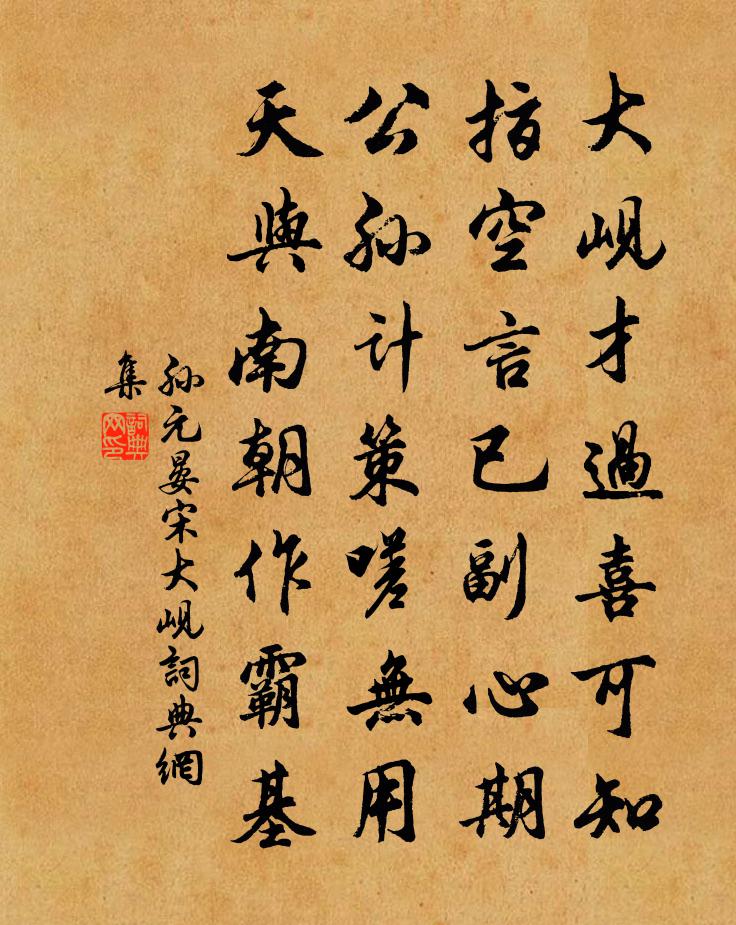 大峴才過喜可知
指空言已副心期
公孫計策嗟無用
天與南朝作霸基
孫元晏宋大峴詞典網
集
詞典
网印